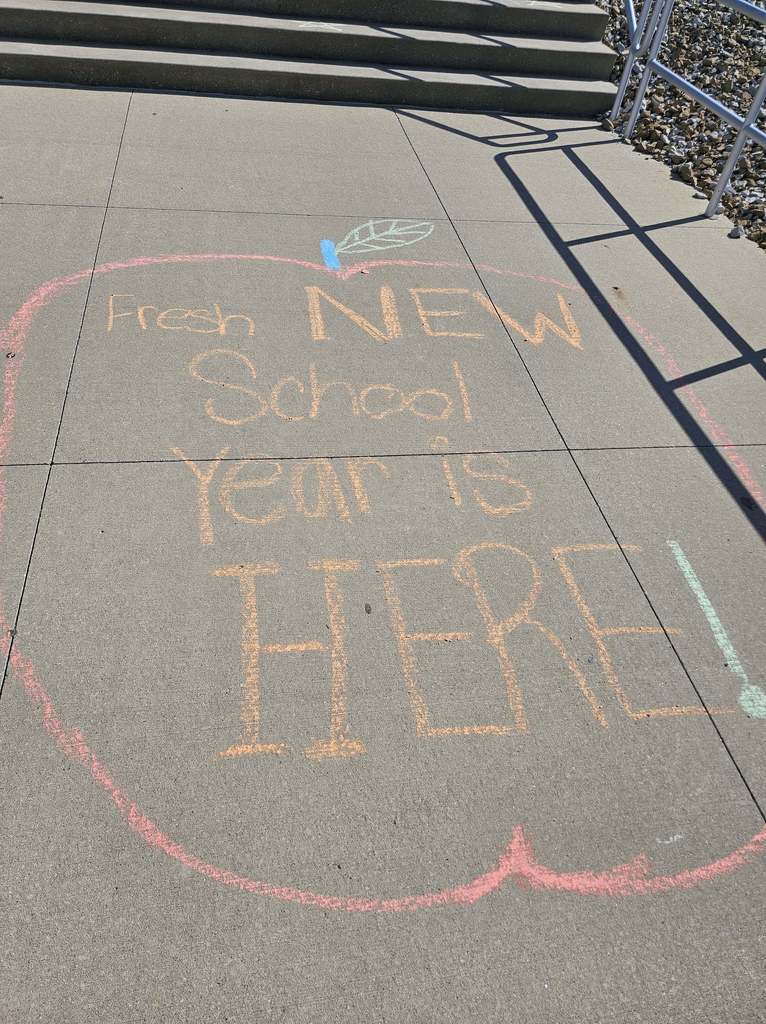 Fresh NEW
School
Year is
HERE!